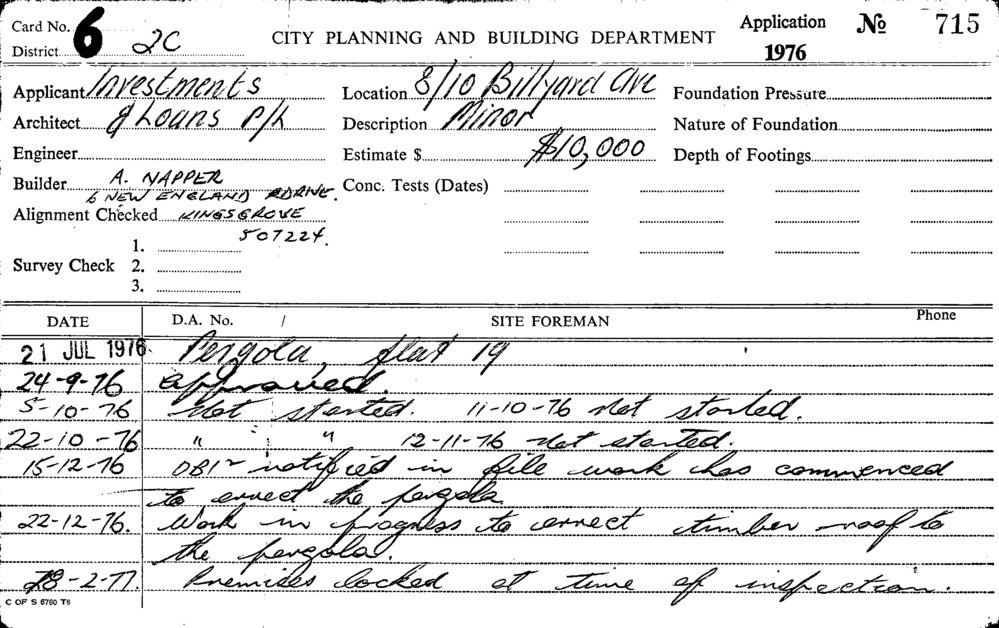 Card No. 6 CITY PLANNING AND BUILDING DEPARTMENT Application № 715
District 2C 1976
Applicant Investments Location 8/10 Billyard Ave Foundation Pressure
Architect & Loans P/L Description Minor Nature of Foundation
Engineer Estimate $ $10,000 Depth of Footings
Builder A. NAPPER Conc. Tests (Dates)
6 NEW ENGLAND
Alignment Checked KINGSGROVE
507224.
1.
Survey Check 2.
3.
DATE D.A. No. / SITE FOREMAN Phone
21 JUL 1976 Pergola, flat 19
24-9-76 approved.
5-10-76 Not started. 11-10-76 Not started.
22-10-76 " " 12-11-76 Not started.
15-12-76 notified in file work has commenced
to errect the pergola
22-12-76. Work in progress to errect timber roof to
the pergola.
28-2-77. Premises locked at time of inspection.
C OF S 6760 T6